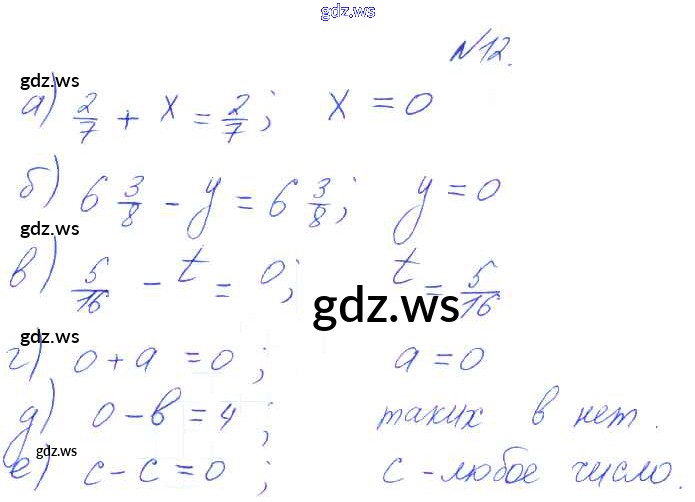 gdz.ws
N12.
gdz.ws
а) 2/7 + x = 2/7; x = 0
б) 6 3/8 - y = 6 3/8; y = 0
gdz.ws
в) 5/16 - t = 0; t = 5/16
gdz.ws
г) 0 + a = 0; a = 0
д) 0 - в = 4; таких в нет.
gdz.ws
е) c - c = 0; c - любое число.